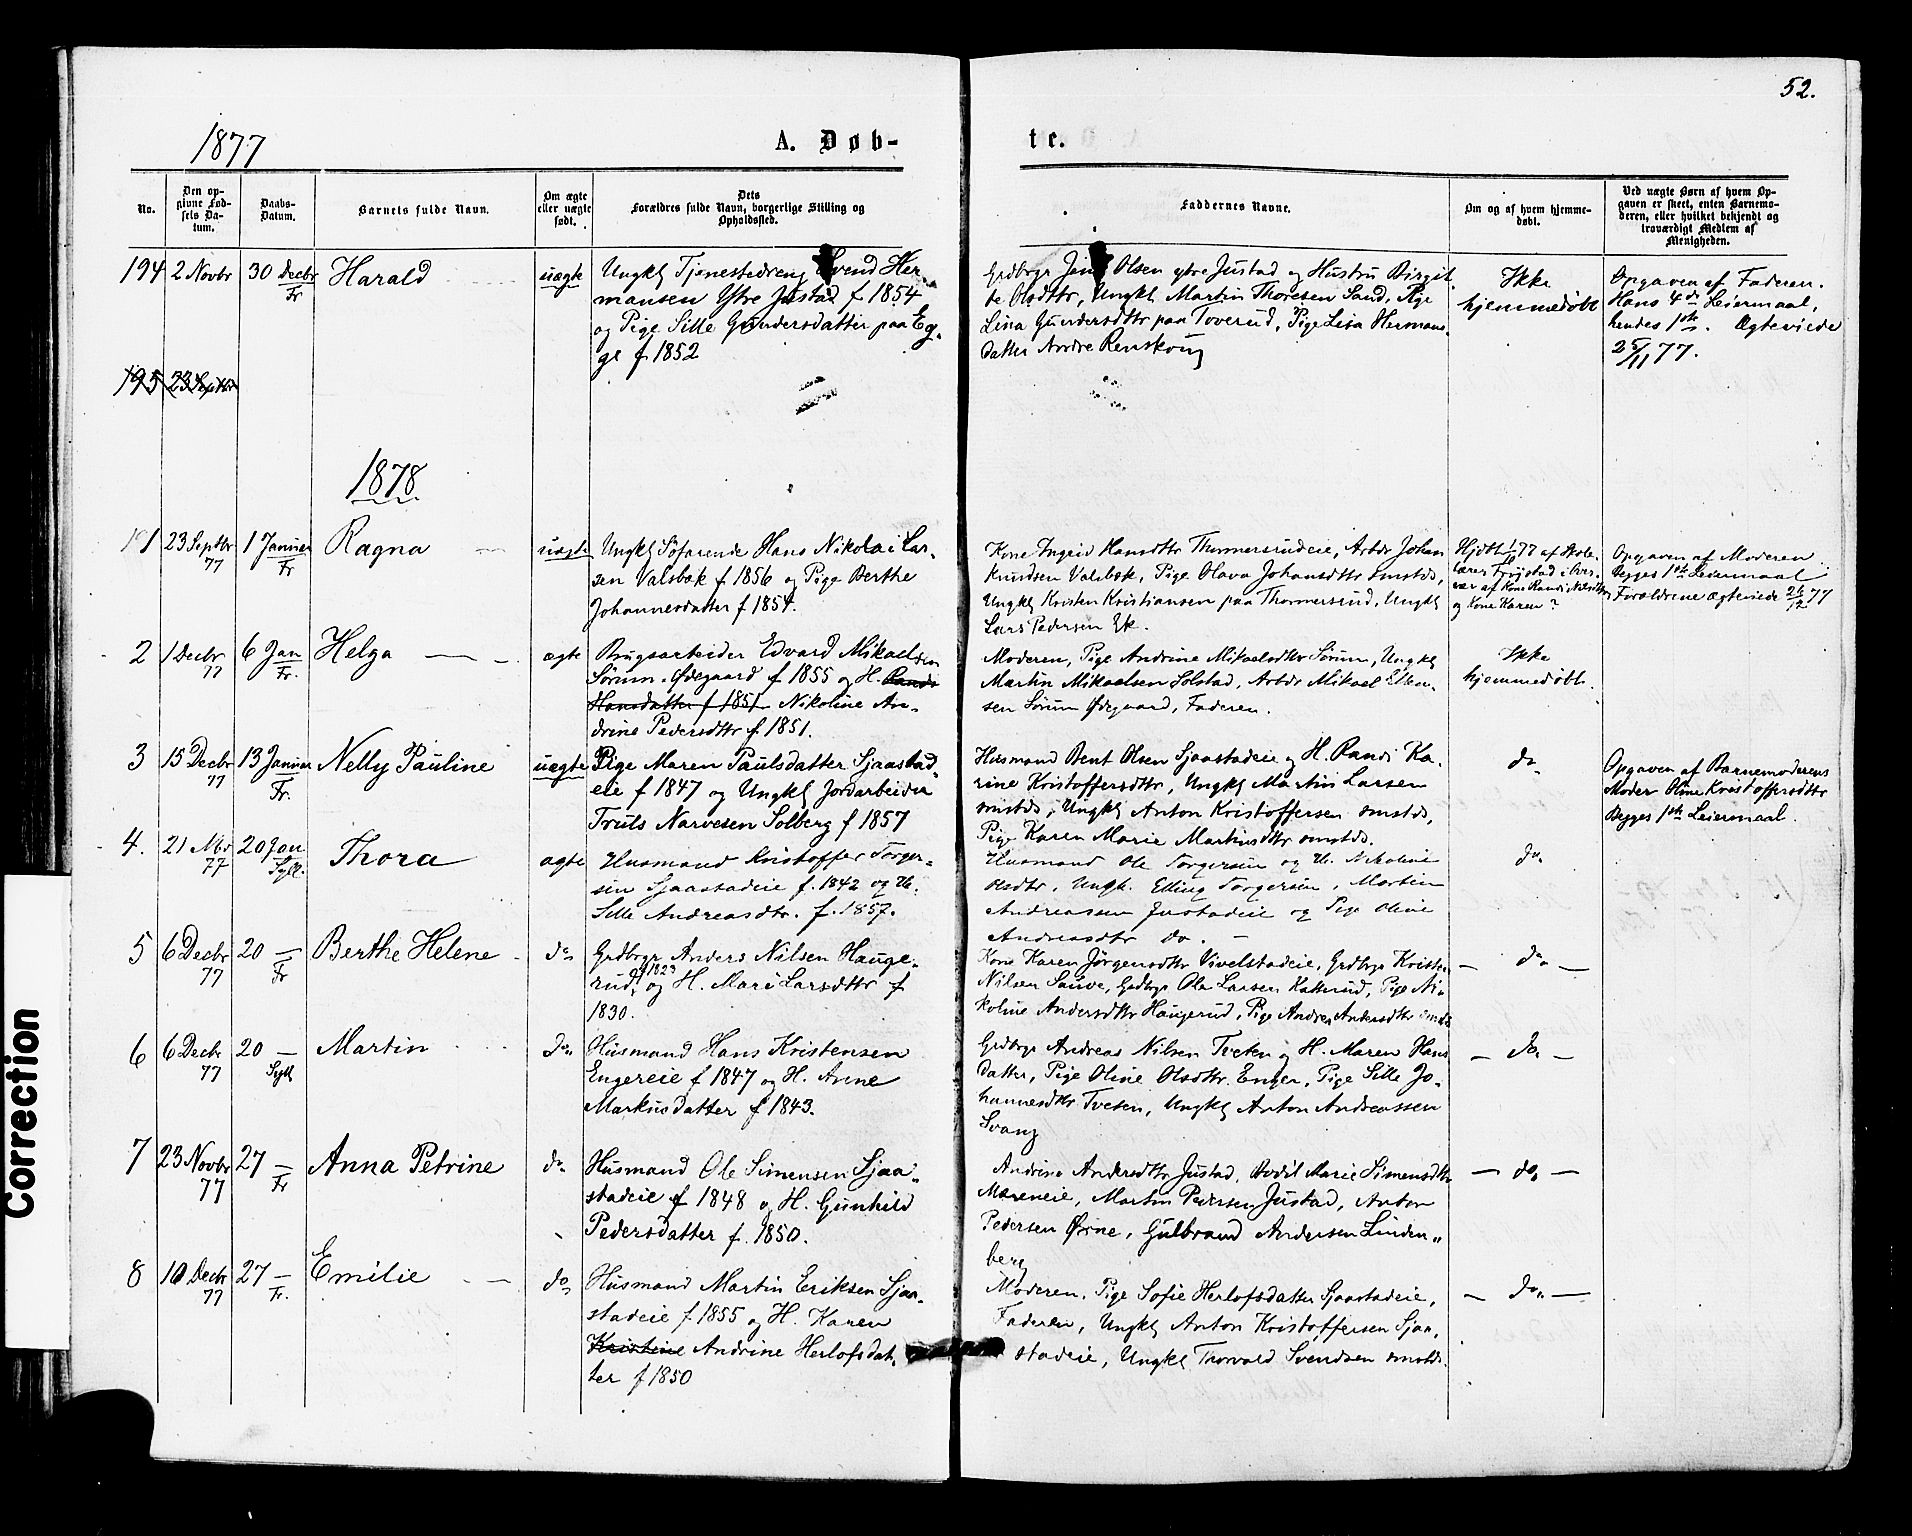 52.
1877
A. Døb-
te.
No.
Den op-
givne Fød-
sels Da-
tum.
Daabs-
Datum.
Barnets fulde Navn.
Om ægte
eller uægte
født.
Dets
Forældres fulde Navn, borgerlige Stilling og
Opholdssted.
Faddernes Navne.
Om og af hvem hjemme-
døbt.
Ved uægte Børn af hvem Op-
gaven er skeet, enten Barnemo-
deren, eller hvilket bekjendt og
troværdigt Medlem af
Menigheden.
194 2 Novbr 30 Decbr Fr Harald uægte
Ungkl Tjenestedreng Svend Her-
mansen Ytre Justad f 1854
og Pige Sille Gundersdatter paa Eg-
ge f 1852
Grdbrgr Jens Olsen ytre Justad og Hustru Birgit-
te Olsdttr, Ungkl Martin Thoresen Sand, Pige
Lina Gundersdttr paa Toverud, Pige Lisa Hermans-
datter Nordre Renskoug
Ikke
hjemmedøbt
Opgaven af Faderen.
Hans 4de Leiermaal,
hendes 1ste. Ægteviede
25/11 77.
195 23 Septbr
1878
1 23 Septbr 77 1 Januer Fr Ragna uægte
Ungkl Søfarende Hans Nikolai Lar-
sen Valsbæk f 1856 og Pige Berthe
Johannesdatter f 1854.
Kone Ingeid Hansdttr Thormersrudeie, Arbdr Johan
Knudsen Valsbæk, Pige Olava Johansdttr smstds,
Ungkl Kristen Kristiansen paa Thormersrud, Ungkl
Lars Pedersen Ek.
Hjdbt 77 af Skole-
lærer
vær af Kone Randi Nilsdttr
og Kone Karen?
Opgaven af Moderen
Begges 1ste Leiermaal
Forældrene ægteviede 26/12 77
2 1 Decbr 77 6 Jan Fr. Helga ægte
Brugsarbeider Edvard Mikaelsen
Sörum Ødegaard f 1855 og H. Randi
Hansdatter f 1851 Nikoline An-
drine Pedersdttr f. 1851.
Moderen, Pige Andrine Mikaelsdttr Sörum, Ungkl
Martin Mikaelsen Solstad, Arbdr Mikael Ellen-
sen Sörum Ødegaard, Faderen.
Ikke
hjemmedøbt.
3 15 Decbr 77 13 Januer Fr. Nelly Pauline uægte
Pige Maren Paulsdatter Sjaastad-
eie f 1847 og Ungkl Jordarbeider
Truls Narvesen Solberg f 1857
Husmand Bent Olsen Sjaastadeie og H. Randi Ka-
rine Kristoffersdttr, Ungkl Martin Larsen
smstds, Ungkl Anton Kristoffersen smstds,
Pige Karen Marie Martinsdttr smstds.
do
Opgaven af Barnemoderens
Moder Oline Kristoffersdttr
Begges 1ste Leiermaal.
4. 21 77 20 Jan Sgll. Thora ægte
Husmand Kristoffer Torger-
sen Sjaastadeie f. 1842 og H.
Sille Andreasdtr. f. 1857.
Husmand Ole Torgersen og H. Nikoline
Olsdtr, Ungk. Elling Torgersen, Martin
Andreassen Justadeie og Pige Oline
Andreasdtr do. -
do
5 6 Decbr 77 20 — Fr Berthe Helene do
Grdbrgr Anders Nilsen Hauge-
rud f 1823 og H. Mari Larsdttr f
1830.
Kone Karen Jørgensdttr Vivelstadeie, Grdbrgr Kristen
Nilsen Sauve, Grdbrgr Ole Larsen Katterud, Pige Ni-
koline Andersdttr Haugerud, Pige Andrea Andersdttr smstds
— do —
6 6 Decbr 77 20 — Sgll Martin do
Husmand Hans Kristensen
Engereie f 1847 og H. Anne
Markusdatter f 1843.
Grdbrgr Andreas Nilsen Tveten og H. Maren Hans
datter, Pige Oline Olsdttr. Enger, Pige Sille Jo-
hannesdttr Tveten, Ungkl Anton Andreassen
Svang
— do —
7 23 Novbr 77 27 — Fr Anna Petrine do
Husmand Ole Simensen Sjaa-
stadeie f 1848 og H. Gunhild
Pedersdatter f. 1850.
Andrine Andersdttr Justad, Bodil Marie Simensdttr
Moreneie, Martin Pedersen Justad, Anton
Pedersen Ørine, Gulbrand Andersen Linden-
berg
— do —
8 10 Decbr 77 27 — Fr. Emilie do
Husmand Martin Eriksen Sjaa-
stadeie f 1855 og H. Karen
Kristine Andrine Herlofsdat-
ter f 1850
Moderen, Pige Sofie Herlofsdatter Sjaastadeie,
Faderen, Ungkl Anton Kristoffersen Sjaa-
stadeie, Ungkl Thorvald Svendsen smstds.
— do —
Correction